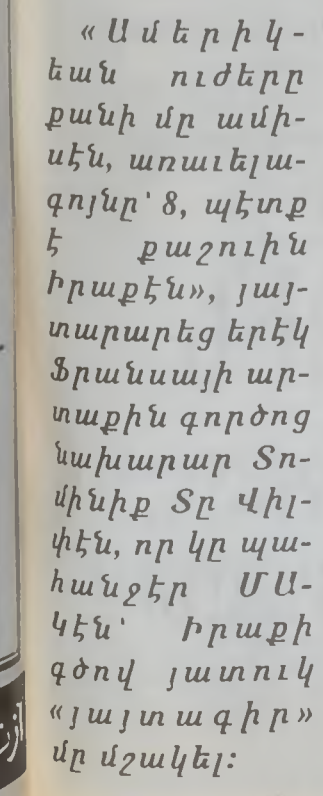 «Ամերիկ-
եան ուժերը
քանի մը ամի-
սէն, առաւելա-
գոյնը՝ 8, պէտք
է քաշուին
Իրաքէն», յայ-
տարարեց երէկ
Ֆրանսայի ար-
տաքին գործոց
նախարար Տո-
մինիք Տը Վիլ-
փէն, որ կը պա-
հանջէր ՄԱ-
Կէն՝ Իրաքի
գծով յատուկ
«յայտագիր»
մը մշակել: